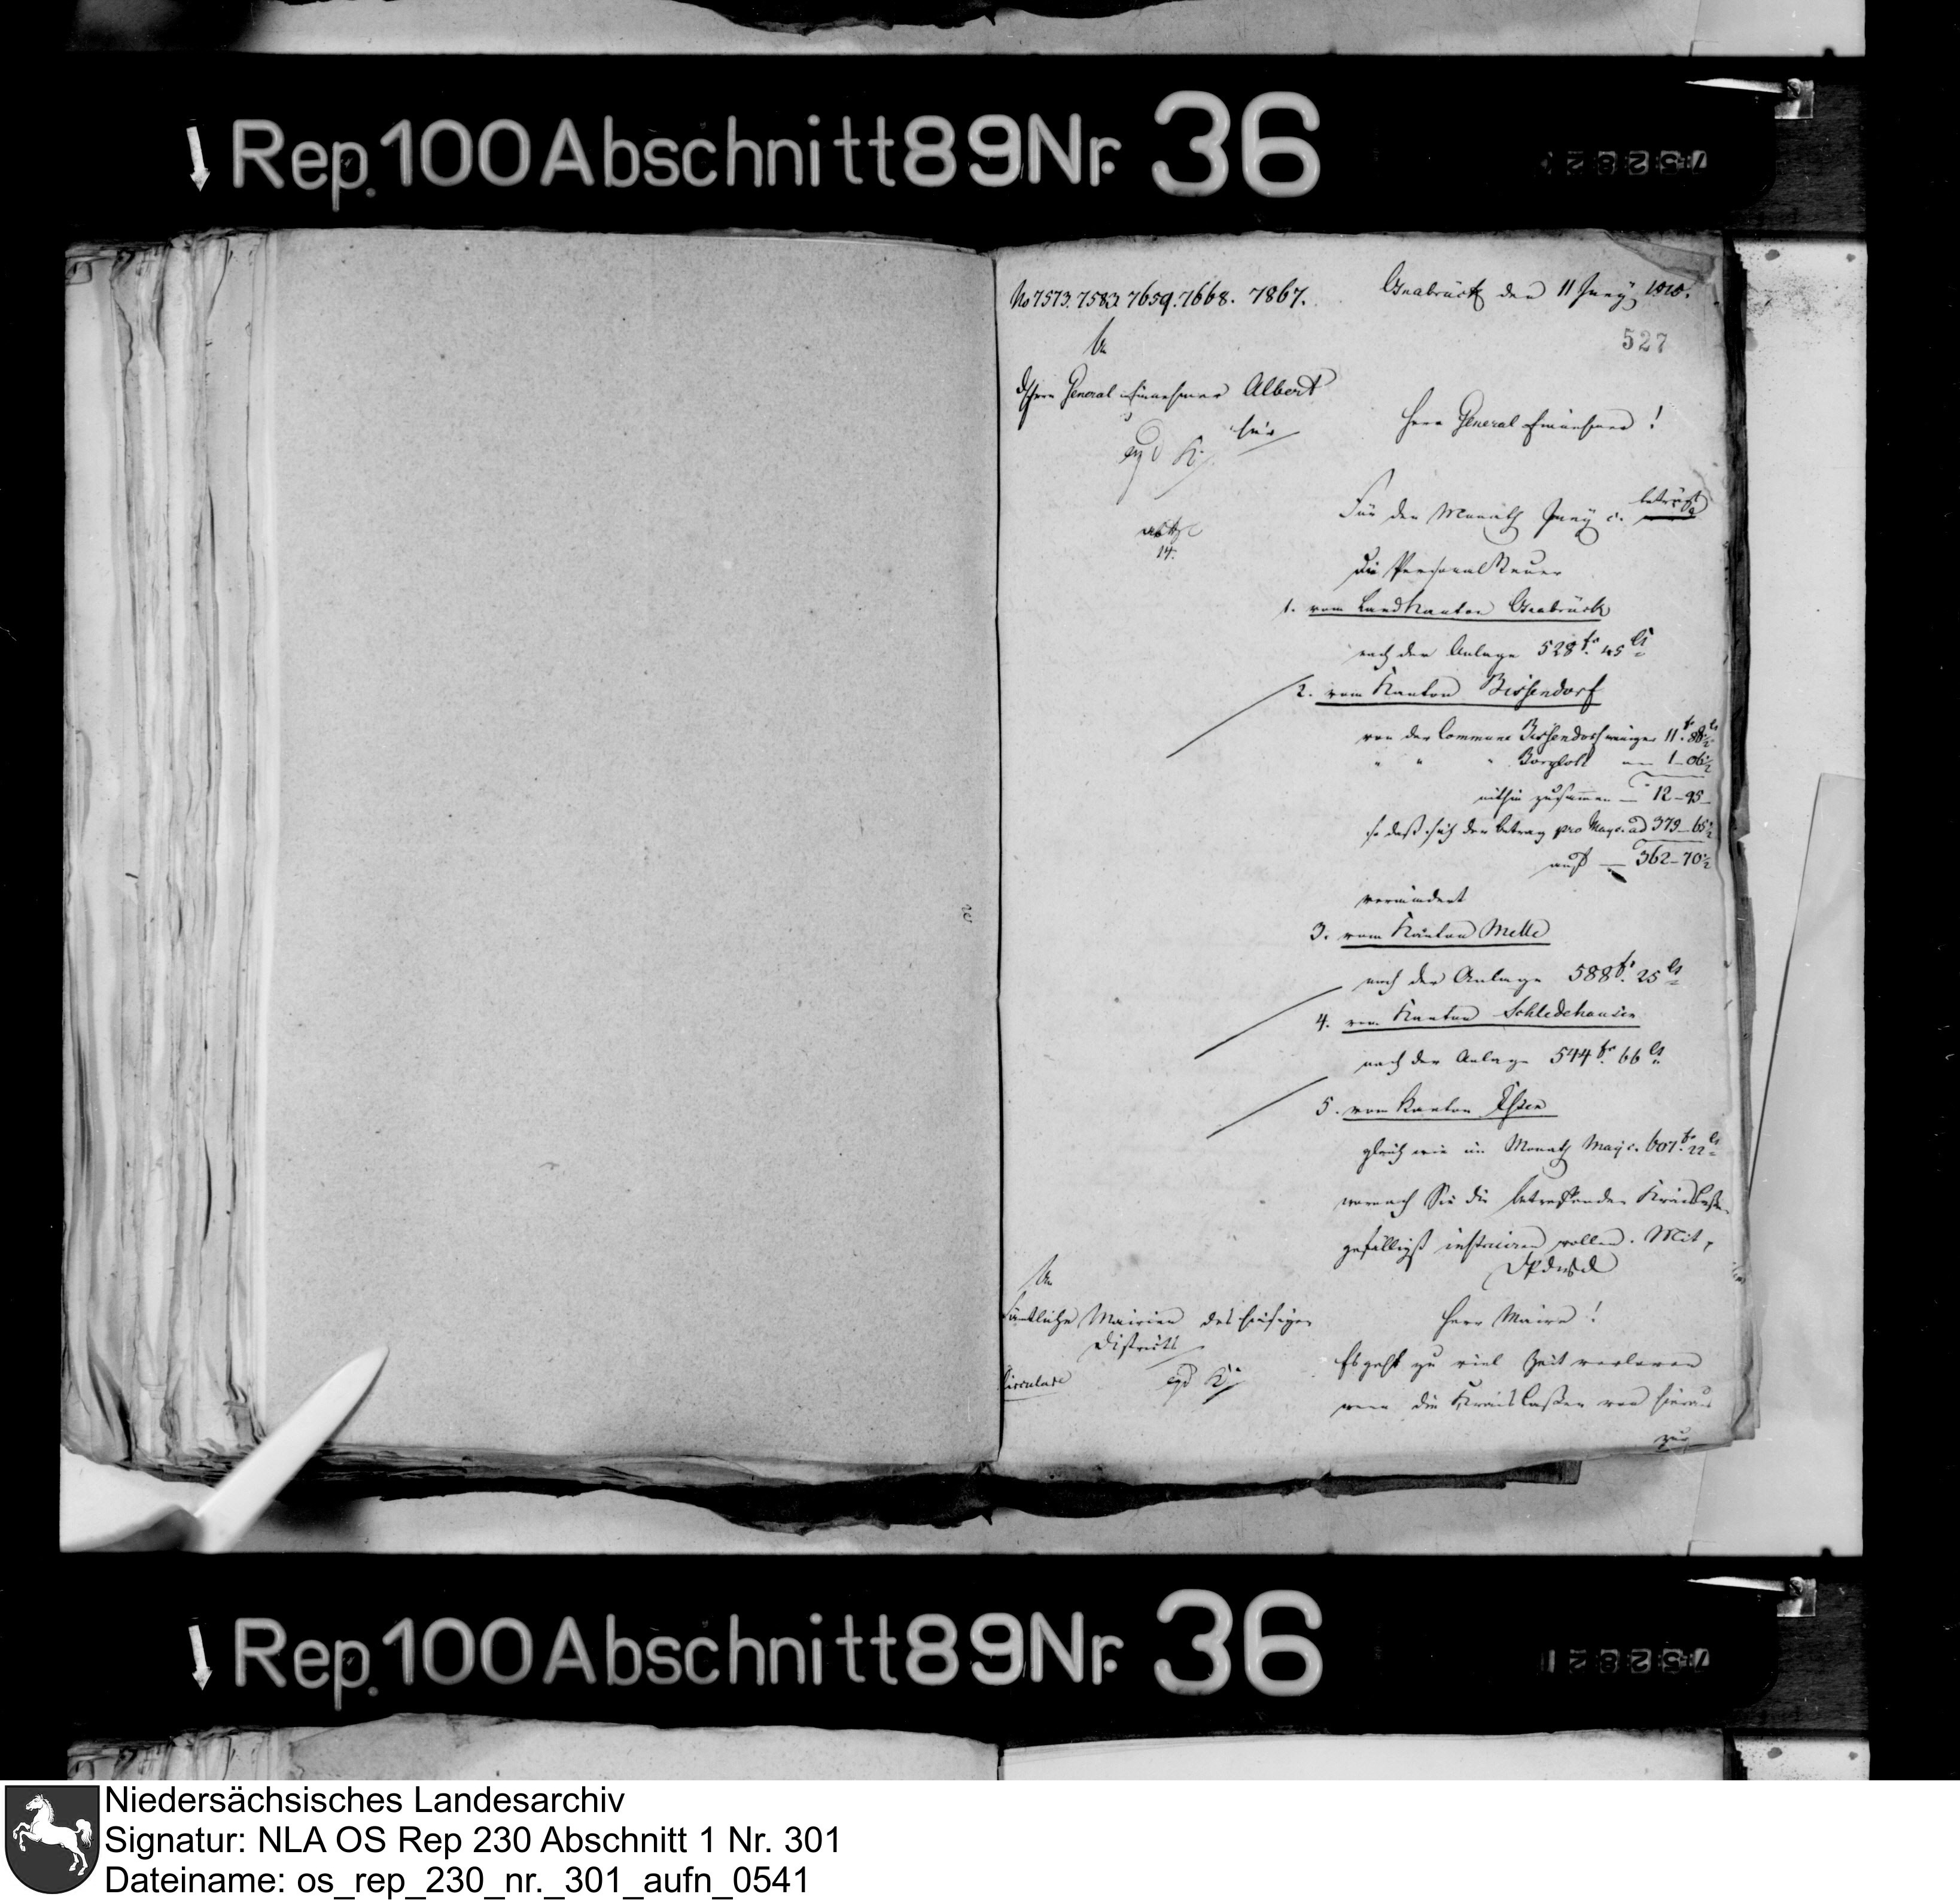 Rep. 100 Abschnitt 89 Nr. 36
No 7573. 7583. 7659. 7668. 7867.
Osnabrück den 11 Juny 1810.
527
An
den Herrn General Einnehmer Albert
hier
Herr General Einnehmer!
14.
Für den Monath Juny c. beträgt
die Personalsteuer
1. vom Landkanton Osnabrück
nach der Anlage 528 fr. 45 Ct
2. vom Kanton Bissendorf
von der Commune Bissendorf weniger 11 fr. 88½
" " " Borgloh — 1–06½
mithin zusammen — 12–95
so daß sich der Betrag pro May c. ad 375–65½
auf — 362–70½
vermindert
3. vom Kanton Melle
nach der Anlage 588 fr. 25 Ct
4. vom Kanton Schledehausen
nach der Anlage 544 fr. 66 Ct
5. vom Kanton Essen
gleich wie im Monath May c. 607 fr. 22 Ct
wornach Sie die betreffenden
gefälligst instruiren wollen. Mit
An
sämtliche Mairien des hiesigen
Districts
Circulare
Herr Maire!
Es geht zu viel Zeit verloren
wenn die Kreis Cassen von hieraus
zur
Rep. 100 Abschnitt 89 Nr. 36
Niedersächsisches Landesarchiv
Signatur: NLA OS Rep 230 Abschnitt 1 Nr. 301
Dateiname: os_rep_230_nr._301_aufn_0541